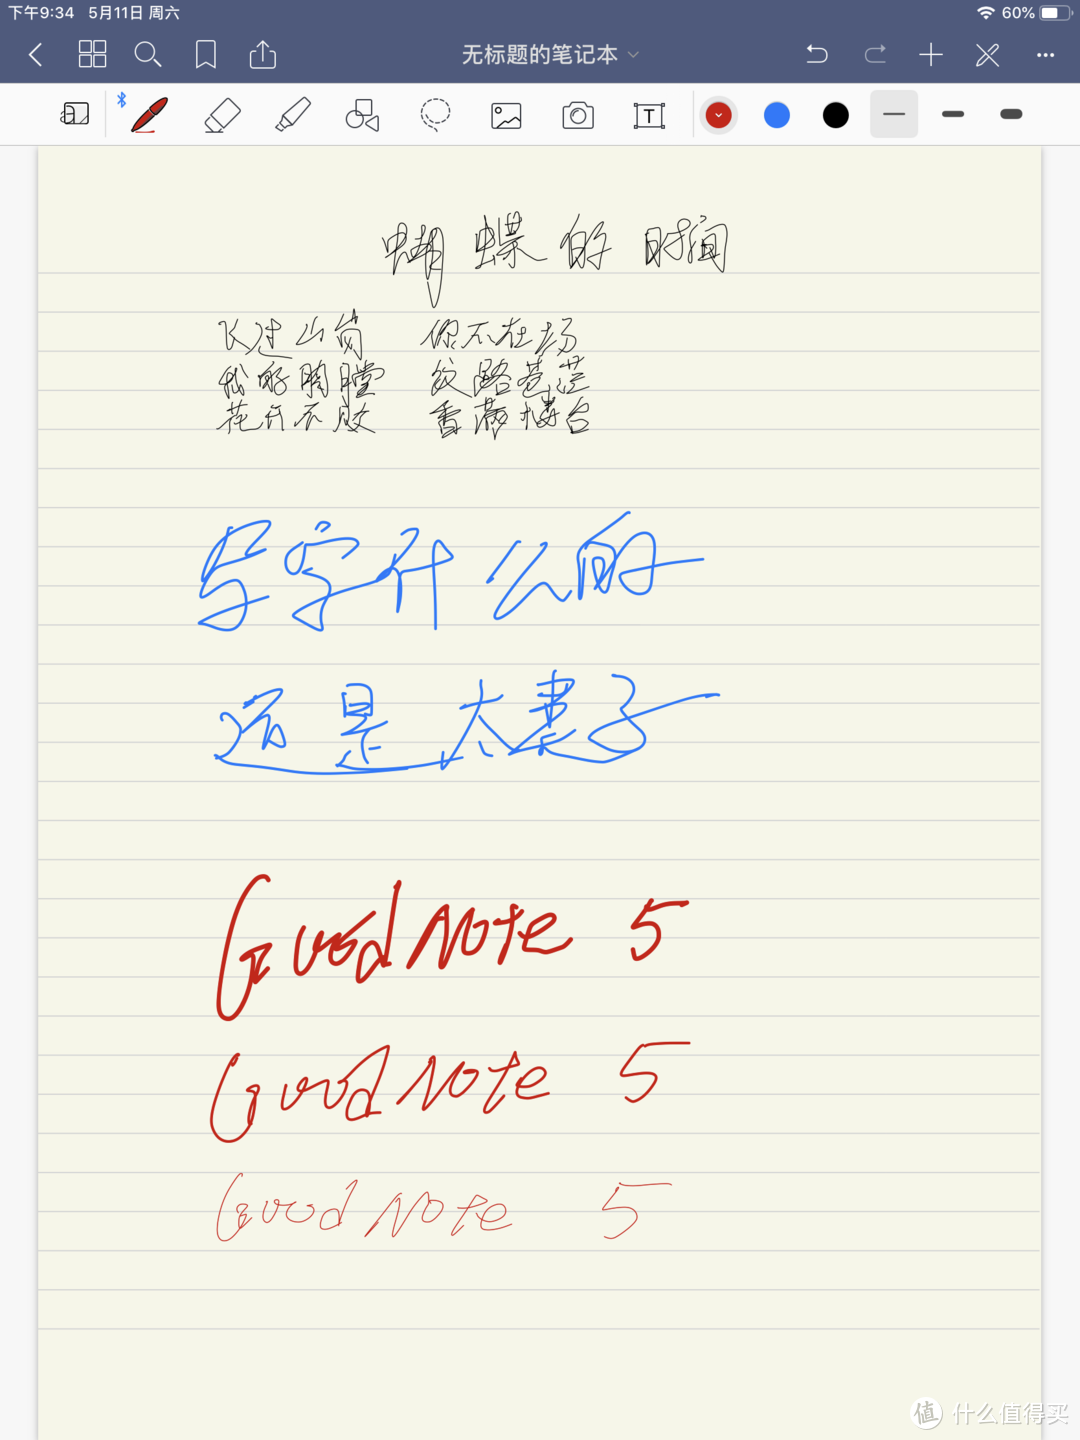 下午9:34 5月11日 周六 60%
无标题的笔记本
T
蝴蝶的时间
飞过山岗 你不在场
我的胸膛 纹路苍茫
花开不败 香满楼台
写字什么的
还是太妻子
GoodNote 5
GoodNote 5
GoodNote 5
值 什么值得买